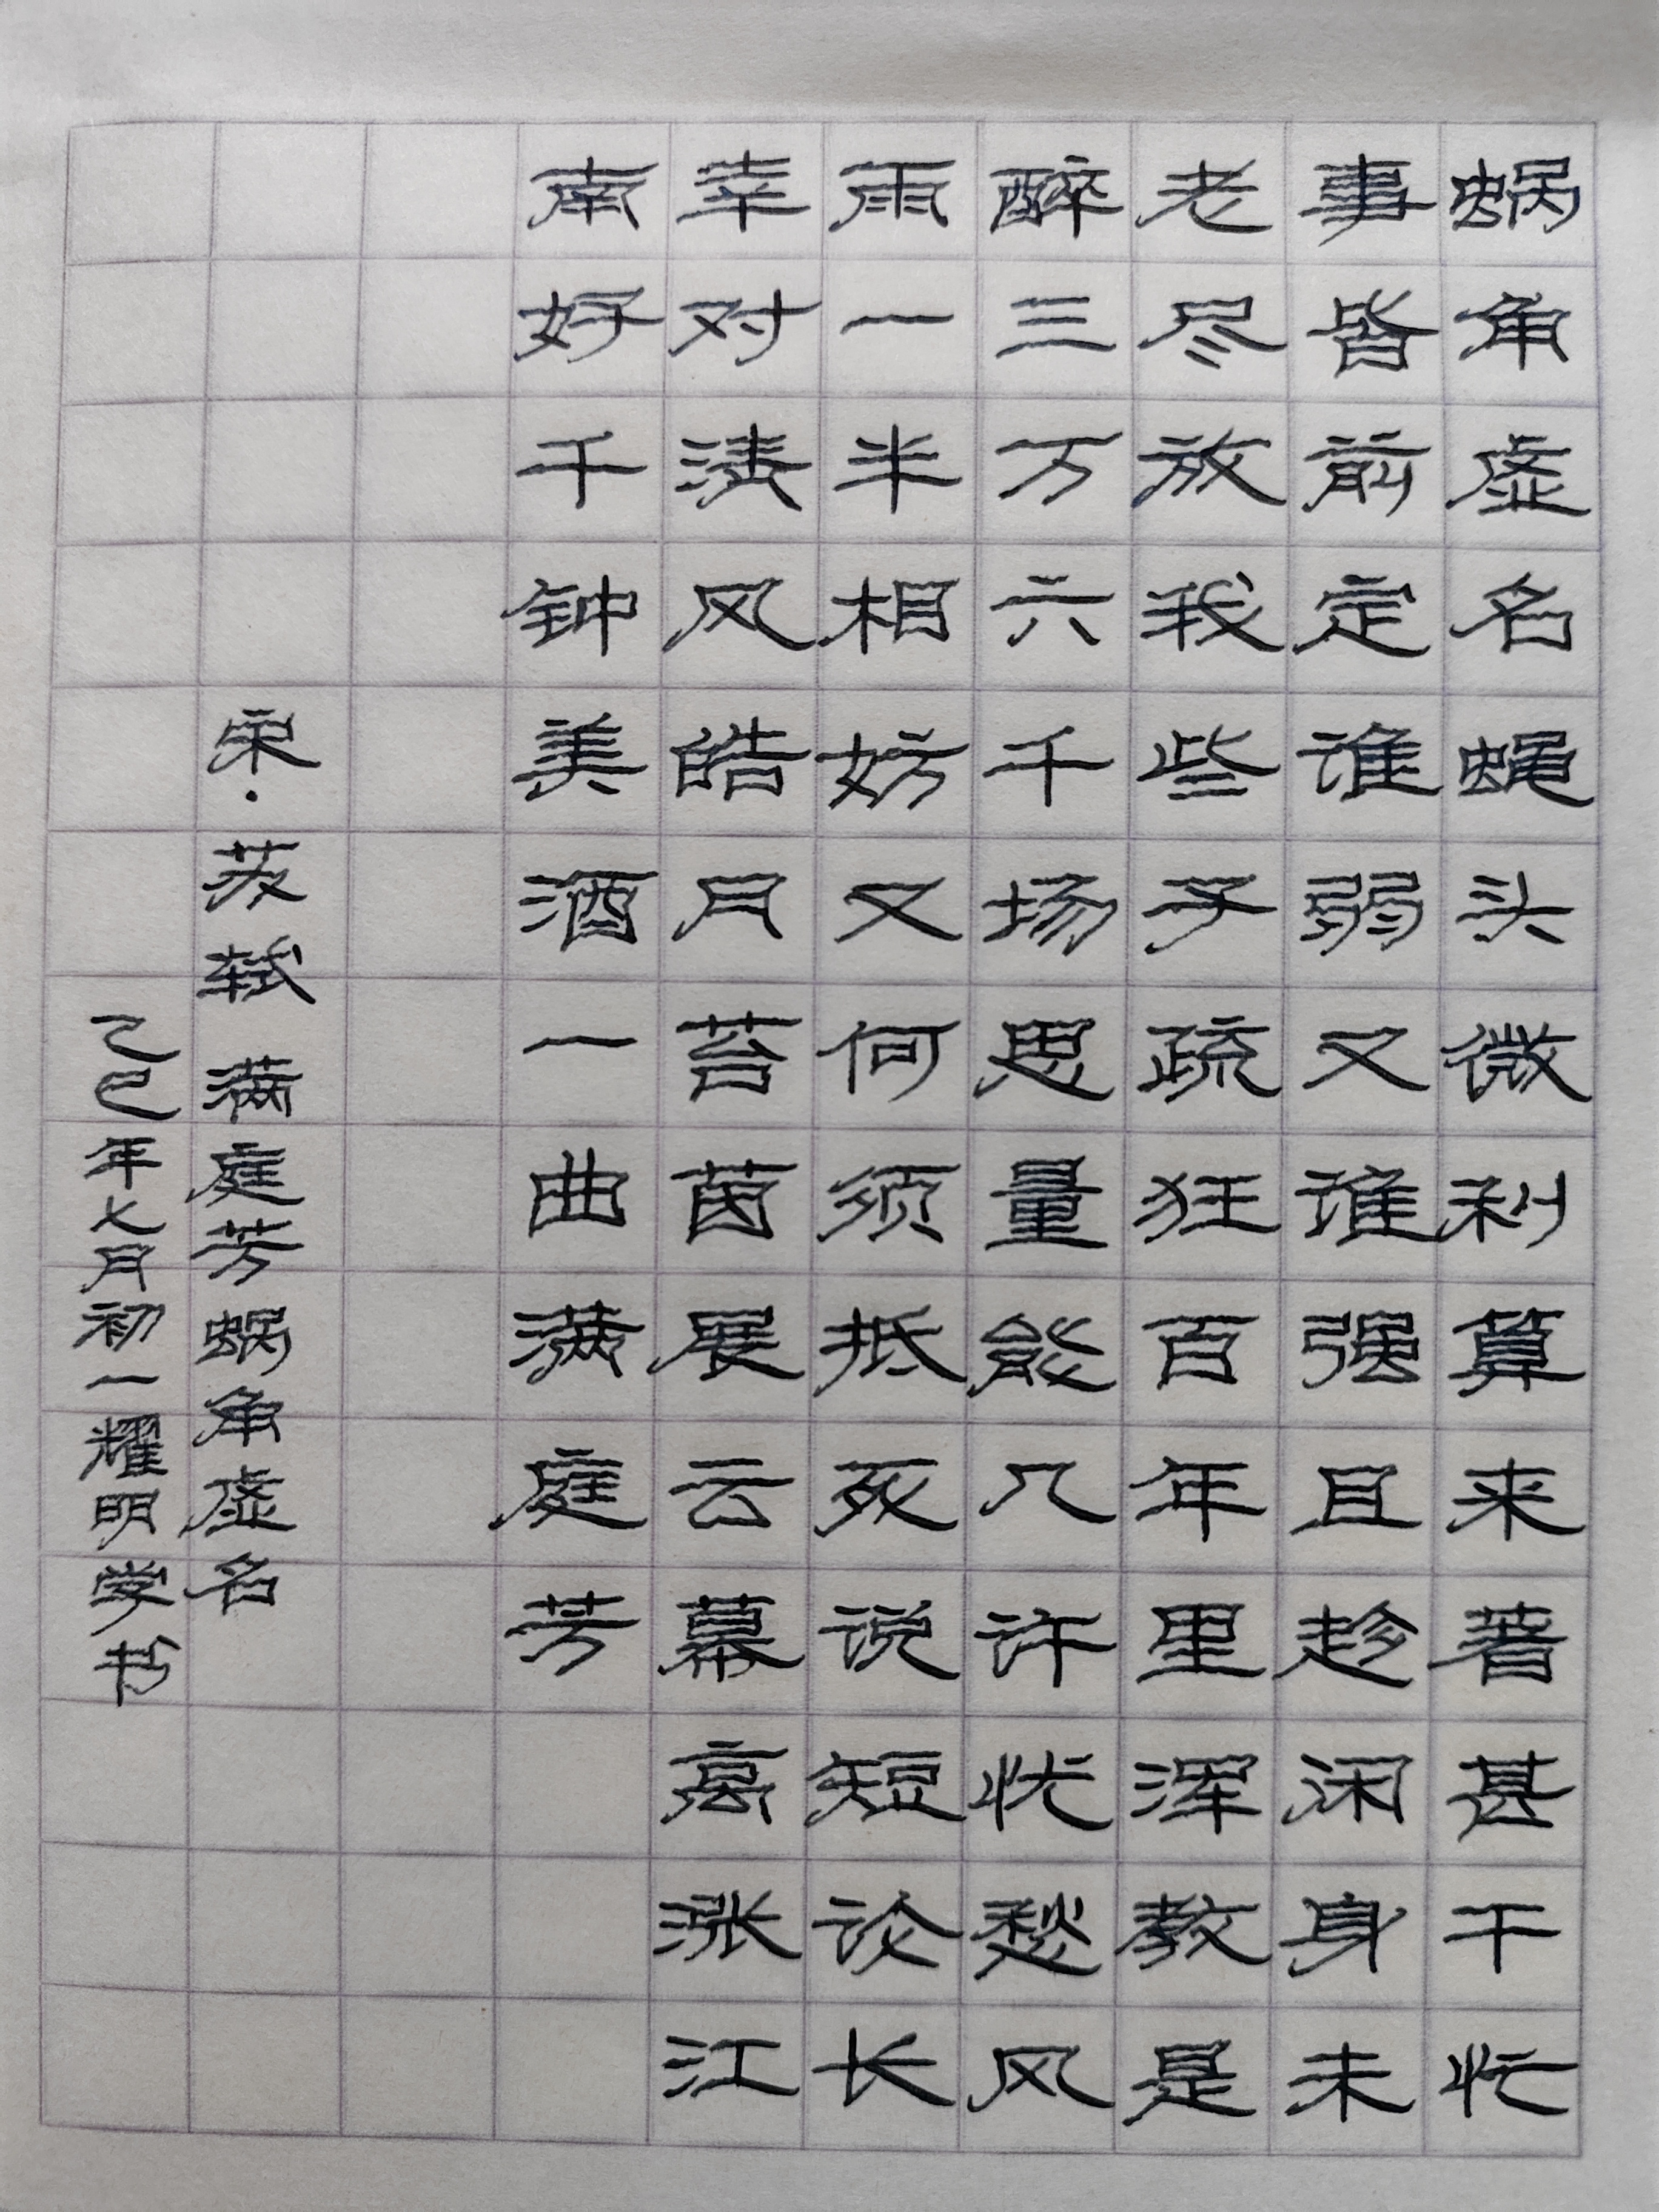 蜗角虚名蝇头微利算来著甚干忙
事皆前定谁弱又谁强且趁闲身未
老尽放我些子疏狂百年里浑教是
醉三万六千场思量能几许忧愁风
雨一半相妨又何须抵死说短论长
幸对清风皓月苔茵展云幕高涨江
南好千钟美酒一曲满庭芳
宋·苏轼 满庭芳蜗角虚名
乙巳年七月初一耀明学书